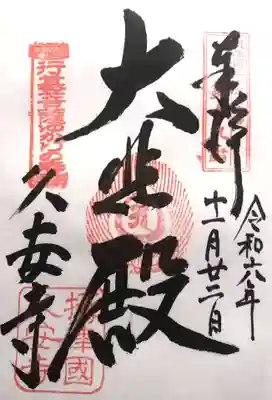 奉拝
令和六年
十一月廿二日
大悲殿
久安寺
行基菩薩ゆかりの花廟
摂津國
久安寺